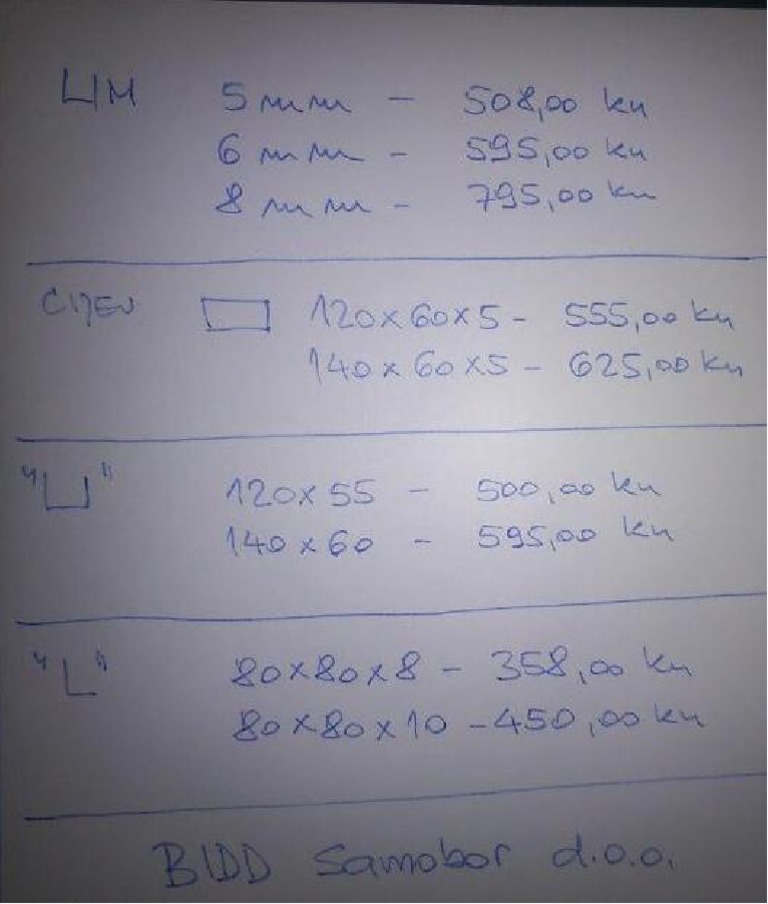 LIM 5 mm - 508,00 kn
6 mm - 595,00 kn
8 mm - 795,00 kn
CIJEV 120x60x5 - 555,00 kn
140x60x5 - 625,00 kn
"U" 120x55 - 500,00 kn
140x60 - 595,00 kn
"L" 80x80x8 - 358,00 kn
80x80x10 - 450,00 kn
BIDD Samobor d.o.o.